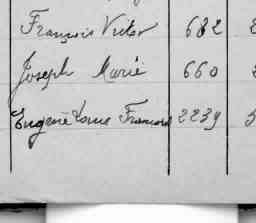 François Victor 682
Joseph Marie 660
Eugène Louis Francois 2239